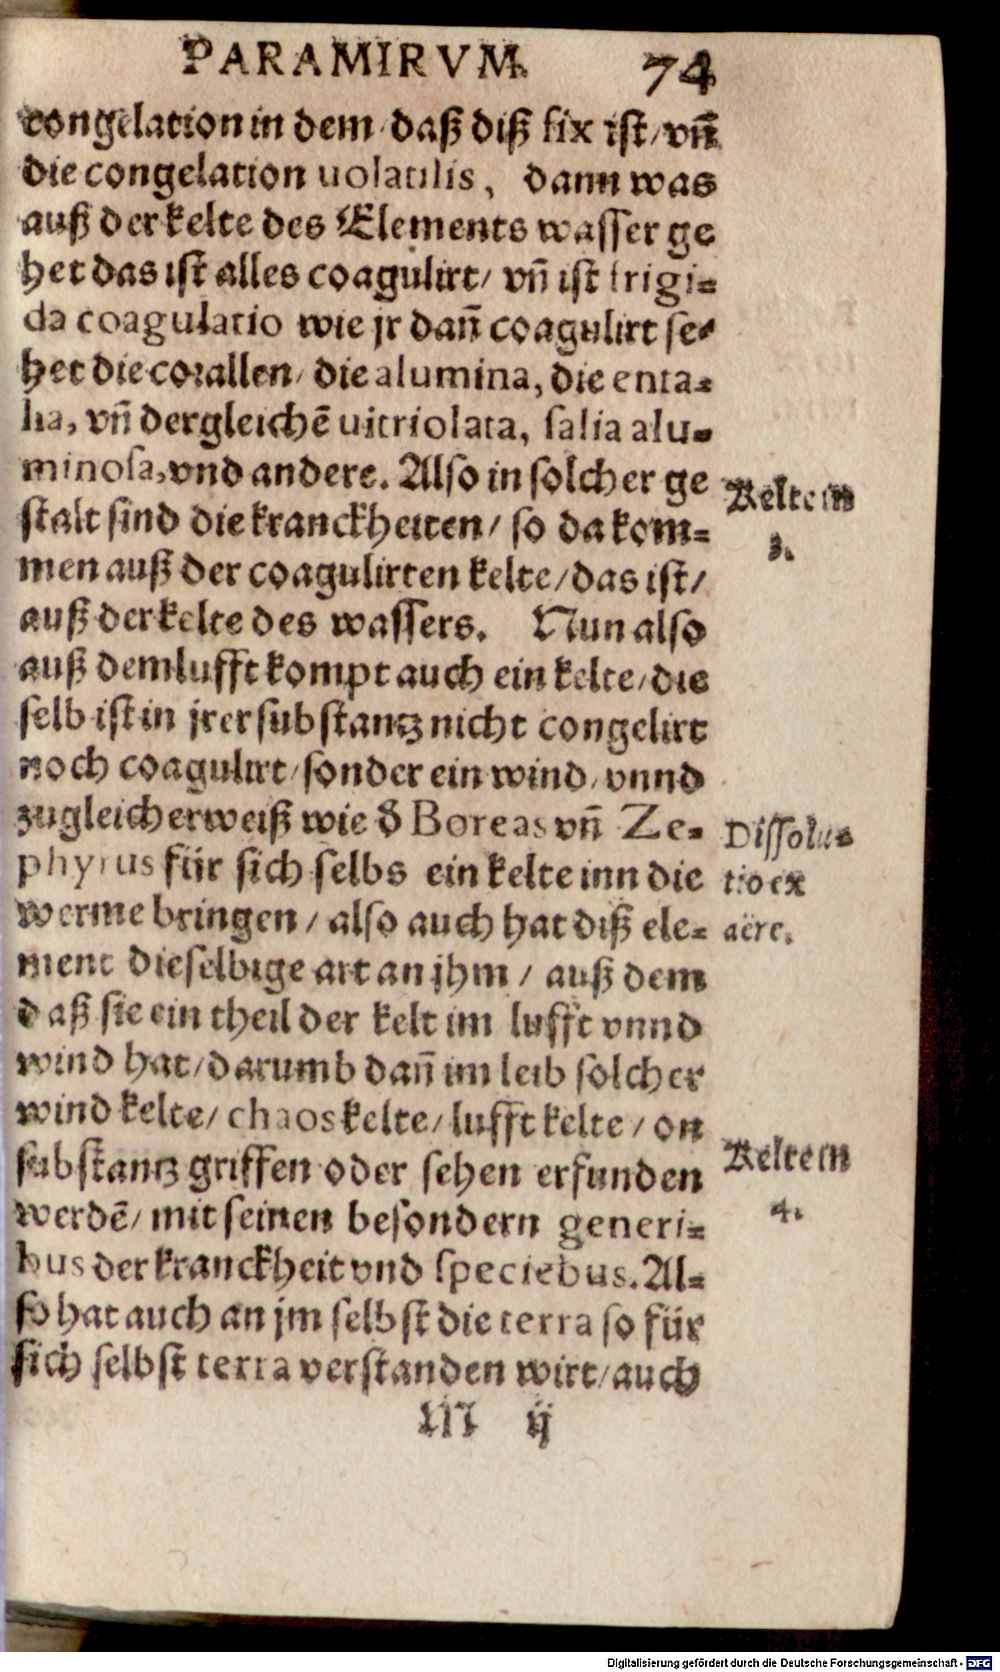 PARAMIRVM. 74
congelation in dem daß diß fix ist/ vñ
die congelation uolatilis, dann was
auß der kelte des Elements wasser ge
het das ist alles coagulirt/ vñ ist frigi=
da coagulatio wie jr dañ coagulirt se=
het die corallen/ die alumina, die enta=
lia, vñ dergleichẽ uitriolata, salia alu=
minosa, vnd andere. Also in solcher ge
stalt sind die kranckheiten/ so da kom=
men auß der coagulirten kelte/ das ist/
auß der kelte des wassers. Nun also
auß dem lufft kompt auch ein kelte/ die
selb ist in jrer substantz nicht congelirt
noch coagulirt/ sonder ein wind/ vnnd
zugleicher weiß wie d̕ Boreas vñ Ze=
phyrus für sich selbs ein kelte inn die
werme bringen/ also auch hat diß ele=
ment dieselbige art an jhm/ auß dem
daß sie ein theil der kelt im lufft vnnd
wind hat/ darumb dañ im leib solcher
wind kelte/ chaos kelte/ lufft kelte/ on
substantz griffen oder sehen erfunden
werdẽ/ mit seinen besondern generi=
bus der kranckheit vnd speciebus. Al=
so hat auch an jm selbst die terra so für
sich selbst terra verstanden wirt/ auch
M ij
Kelte in
3.
Dissolu=
tio ex
aëre.
Kelte in
4.
Digitalisierung gefördert durch die Deutsche Forschungsgemeinschaft - DFG